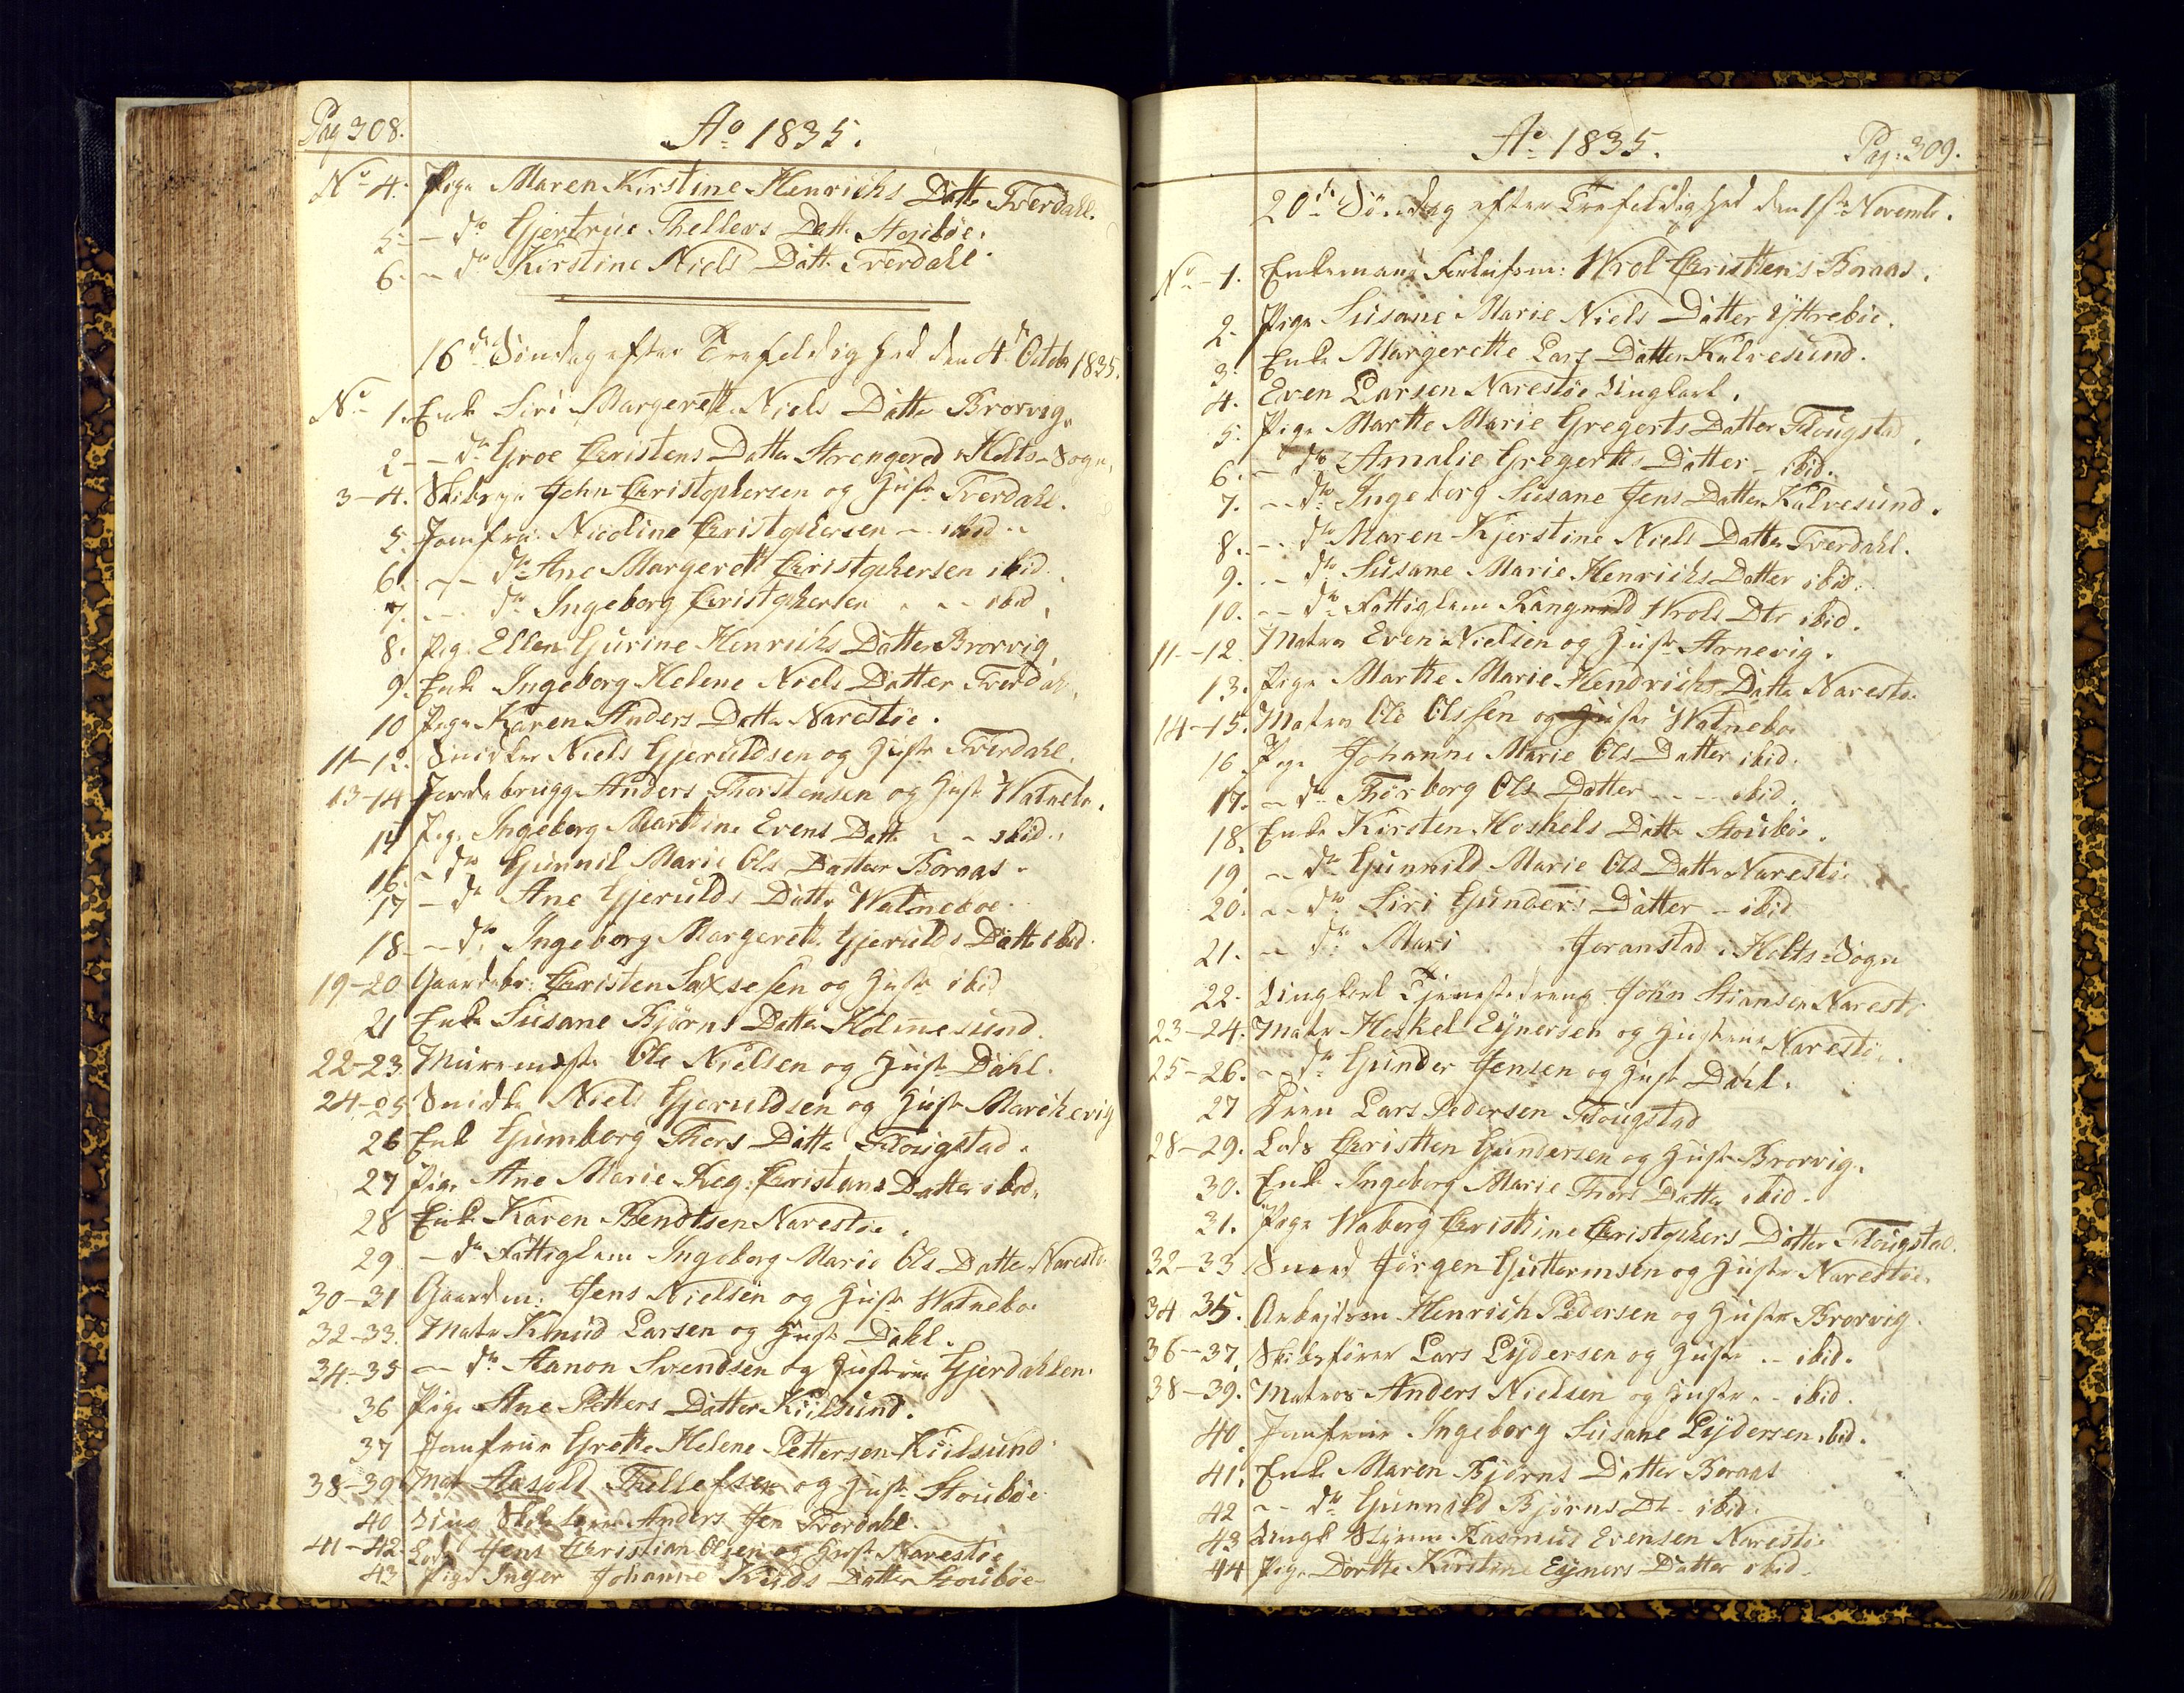 Pag 308.
Ao 1835.
No 4. Pige Maren Kirstine Henrichs Datter Tverdahl.
5 - do Gjertrue Thellevs Datt. Stoubøe.
6. - do Kirstine Niels Datt. Tverdahl.
16de Søndag efter Trefoldighed den 4de Octob 1835.
No 1. Enke Siri Margerett Niels Datter Brorvig.
2 - do Groe Christens Datter Strengered Holts-Sogn.
3-4. Skibscp John Christophersen og Hustr Tverdahl.
5. Jomfru Nicoline Christophersen - ibid.
6. - do Ane Margerett Christophersen ibid.
7. - do Ingeborg Christophersen - ibid.
8. Pig. Ellen Gurine Henrichs Datter Brorvig.
9. Enke Ingeborg Helene Niels Datter Tverdahl.
10 Pige Karen Anders Datter Narestøe.
11-12. Snidker Niels Gjeruldsen og Hustr Tverdahl.
13-14 Jordebrugg. Anders Thorstensen og Hust Watneb.
14 Pig. Ingeborg Marthine Evens Datt. - ibid.
16. - do Gunnil Marie Ols Datter Boraas.
17 - do Ane Gjerulds Datter Watnebøe.
18 - do Ingeborg Margerett. Gjerulds Datt. ibid.
19-20 Gaardebr: Christen Saxsesen og Hustr ibid
21 Enke Susane Bjørns Datter Holmesund.
22-23. Muremest. Ole Nielsen og Hustr Dahl.
24-25 Snidke Niels Gjeruldsen og Hustr Marchevig
26 Enk Gumborg Thors Datter Flougstad.
27 Pige Ane Marie Reg. Christans Datter ibid.
28 Enk. Karen Bendtsen Narestøe.
29 - do Fattiglem Ingeborg Marie Ols Datter Narestø.
30-31 Gaardm: Jens Nielsen og Hustr Watneboe
32-33. Matr Knud Larsen og Hustr Dahl.
34-35 - do Aanon Svendsen og Hustrue Gjerdahlen.
36 Pige Ane Petters Datter Kiilsund.
37 Jomfrue Grethe Helene Pettersen Kiilsund
38-39. Mat Aasold Thellefsen og Hustr Stoubøe
40 Ung Anders Jen Tverdahl.
41-42. Lods Jens Christian Olsen og Hustr Narestøe
43 Pige Inger Johanne Knuds Datter Stoubøe
Ao 1835.
Pag: 309.
20de Søndag efter Trefoldighed den 1ste Novembr.
No 1. Enkemand Wrol Christens Boraas.
2. Pige Susane Marie Niels Datter Yttrebøe.
3. Enke Margerette Lars Datter Kalvesund.
4. Even Larsen Narestøe Ungkarl.
5. Pige Marthe Marie Gregerts Datter Flougstad.
6. - do Amalie Gregertts Datter - ibid.
7. - do Ingeborg Susane Jens Datter Kalvesund.
8. - do Maren Kjerstine Niels Datter Tverdahl.
9. - do Susane Marie Henrichs Datter ibid.
10. - do Fattiglem Rangnild Wrols Dtr ibid.
11-12. Matros Even Nielsen og Hustr Arnevig.
13. Pige Marthe Marie Hendrichs Datter Narestøe
14-15. Matros Ole Olssen og Hustr Watneboe
16. Pige Johanne Marie Ols Datter ibid.
17. - do Thorborg Ols Datter - - - ibid.
18. Enke Kirsten Hoskels Datter Stoubøe.
19 - do Gunnild Marie Ols Datter Narestøe
20. - do Siri Gunders Datter - ibid
21. - do Mari Joranstad i Holts-Sogn
22. Ungkarl Tjenestedreng John Stiansen Narestø
23-24. Matr Hoskel Eynersen og Hustrue Narestøe.
25-26. - do Gunder Jensen og Hustr Dahl.
27 Lars Pedersen Flougstad
28-29. Lods Christen Gundersen og Hustr Brorvig.
30. Enk Ingeborg Marie Thors Datter ibid.
31. Pige Waborg Christine Christophers Datter Flougstad.
32-33 Smed Jørgen Guttormsen og Hustr Narestøe.
34. 35. Arbejdsm Henrich Pedersen og Hustr Brorvig.
36-37. Skibsfører Lars Lydersen og Hustr - ibid.
38-39. Matros Anders Nielsen og Hustr - ibid.
40. Jomfrue Ingeborg Susane Lydersen ibid.
41. Enke Maren Bjørns Datter Boraas
42 - do Gunnild Bjørns Dtr ibid.
43 Ungk Rasmus Evensen Narestøe
44 Pige Dorthe Kirstine Eyners Datter ibid.